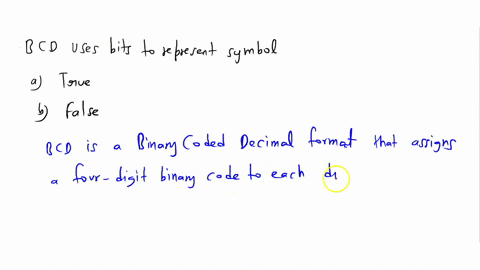 BCD uses bits to represent symbol
a) True
b) False
BCD is a Binary Coded Decimal format that assigns
a four-digit binary code to each di